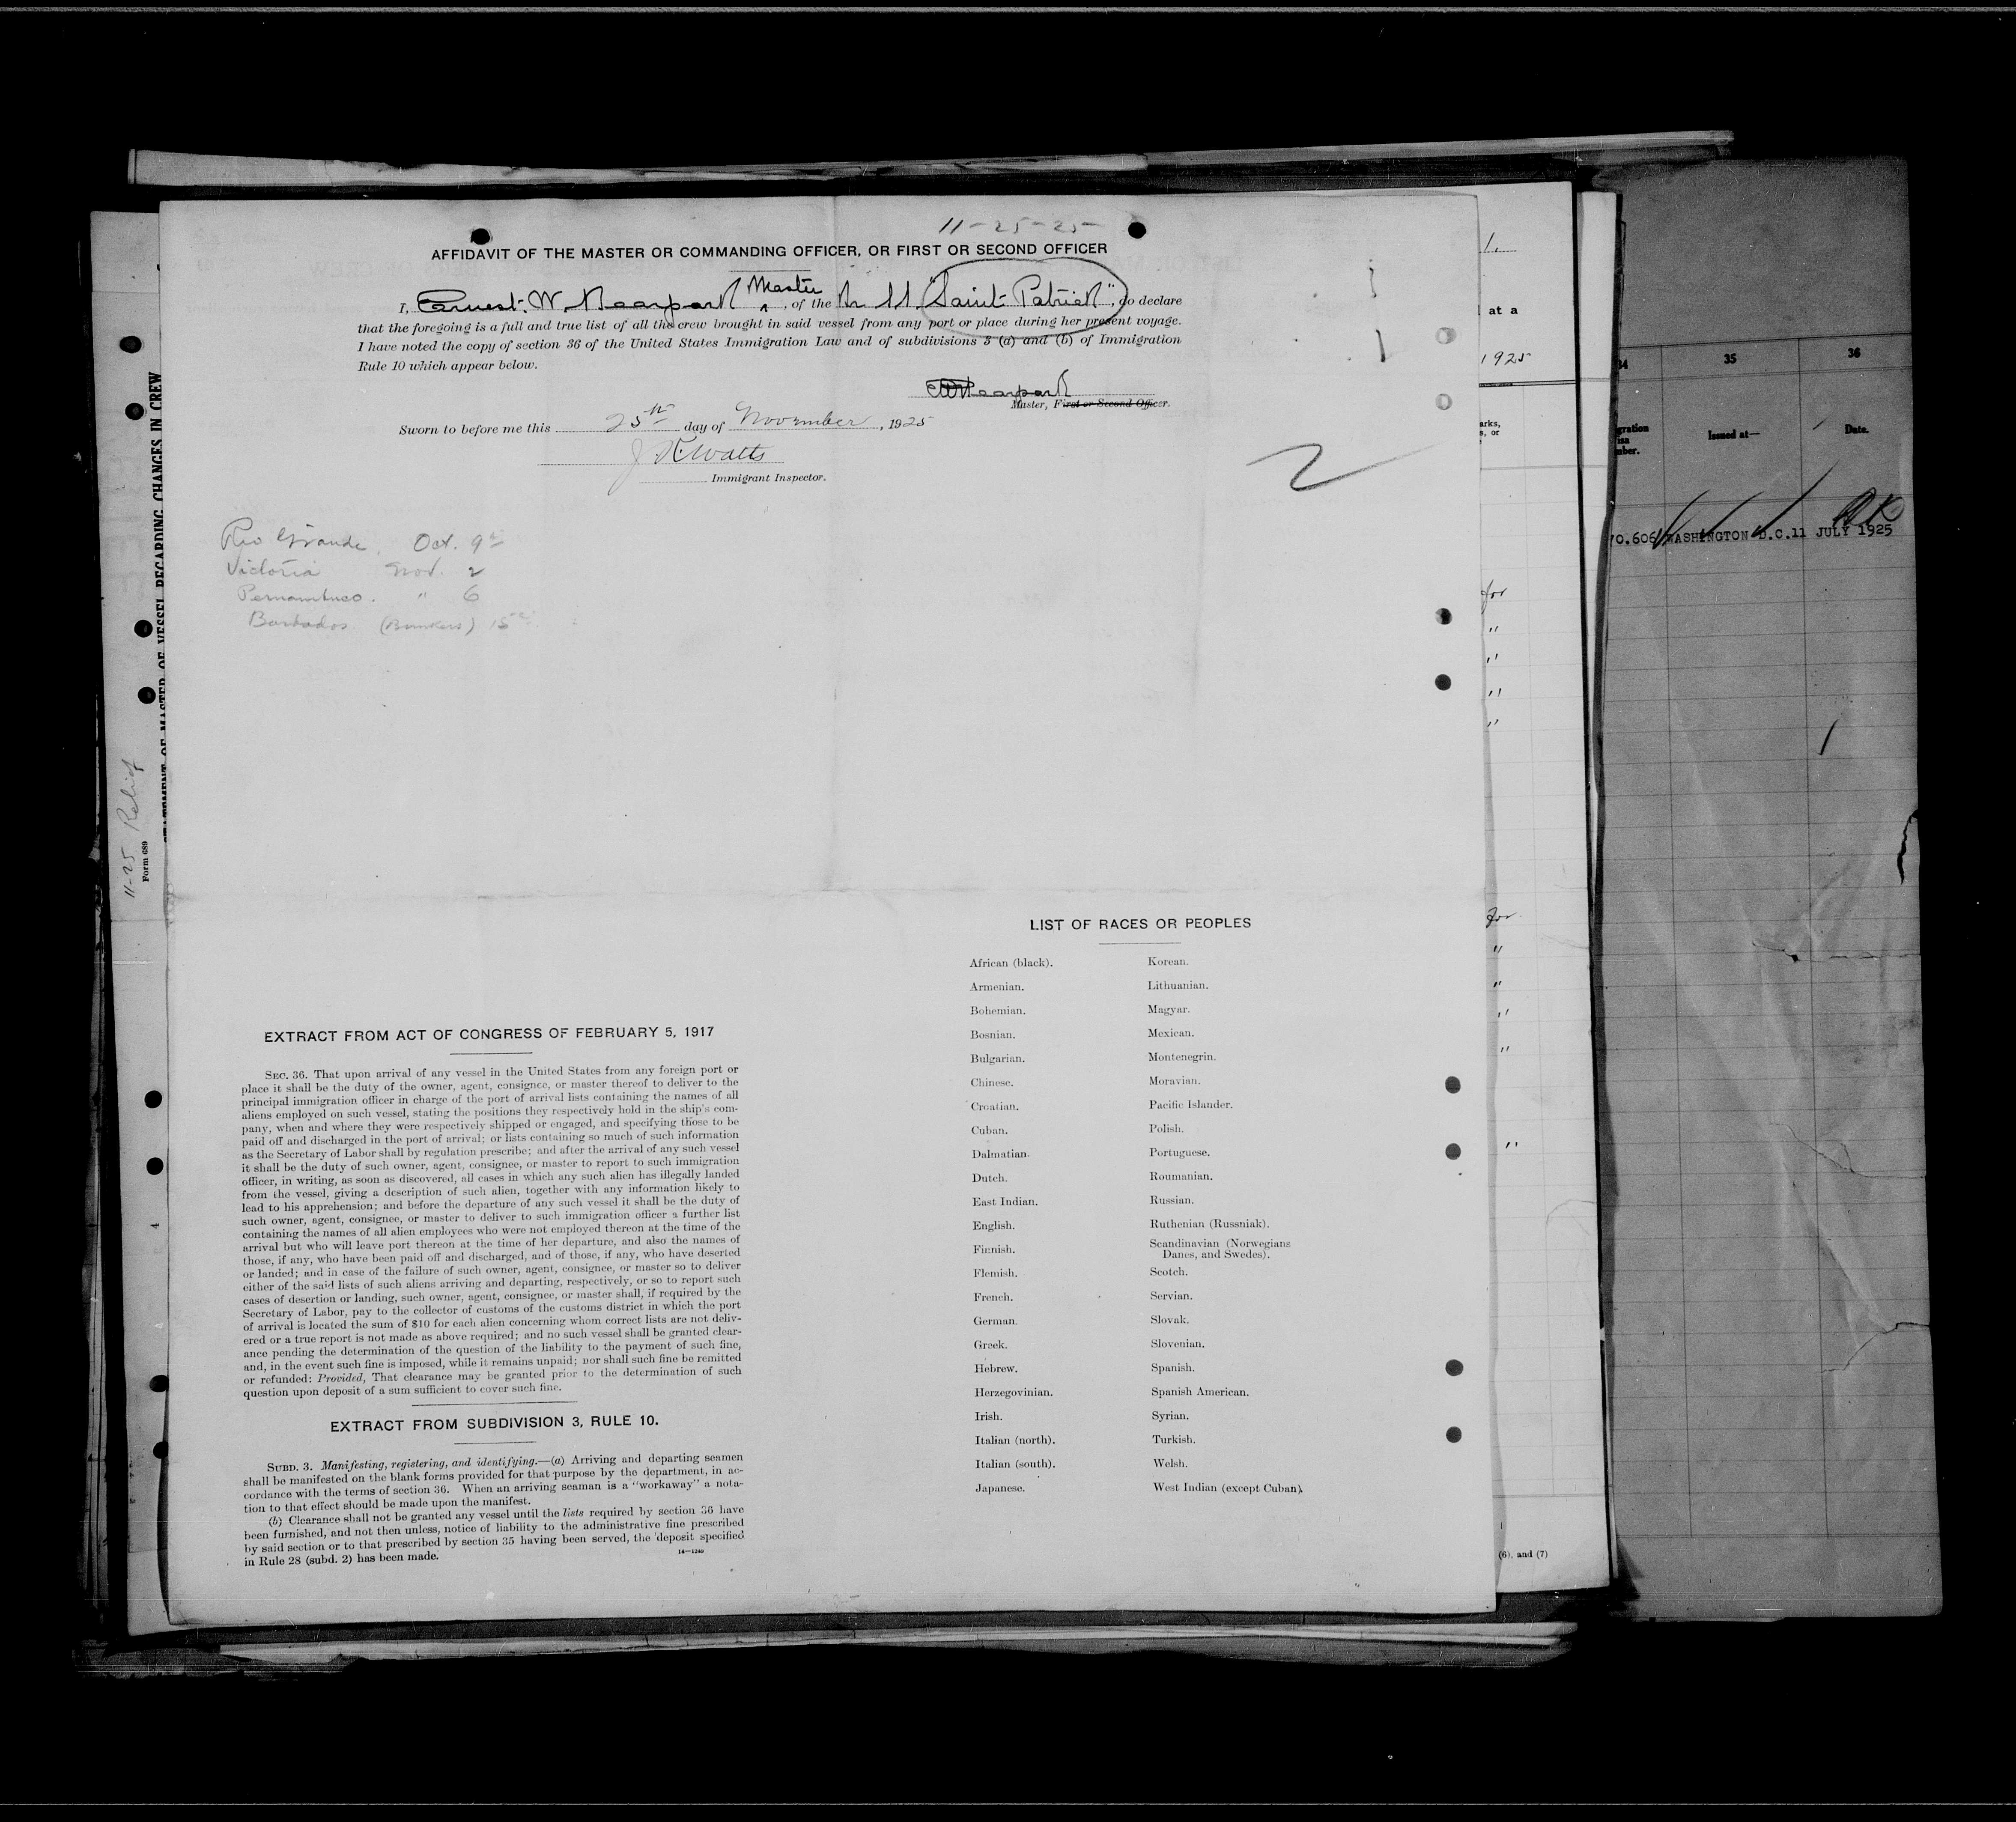 11-25-25-
AFFIDAVIT OF THE MASTER OR COMMANDING OFFICER, OR FIRST OR SECOND OFFICER
I, Ernest. W. Nearpark Master, of the Br SS. "Saint Patrick", do declare
that the foregoing is a full and true list of all the crew brought in said vessel from any port or place during her present voyage.
I have noted the copy of section 36 of the United States Immigration Law and of subdivisions 3 (a) and (b) of Immigration
Rule 10 which appear below.
Master, First or Second Officer.
Sworn to before me this 25th day of November, 1925
J. K. Watts
Immigrant Inspector.
2
Rio Grande. Oct. 9th
Victoria Nov. 2
Pernambuco. " 6
Barbados (Bunkers) 15th
LIST OF RACES OR PEOPLES
African (black).
Armenian.
Bohemian.
Bosnian.
Bulgarian.
Chinese.
Croatian.
Cuban.
Dalmatian.
Dutch.
East Indian.
English.
Finnish.
Flemish.
French.
German.
Greek.
Hebrew.
Herzegovinian.
Irish.
Italian (north).
Italian (south).
Japanese.
Korean.
Lithuanian.
Magyar.
Mexican.
Montenegrin.
Moravian.
Pacific Islander.
Polish.
Portuguese.
Roumanian.
Russian.
Ruthenian (Russniak).
Scandinavian (Norwegians
Danes, and Swedes).
Scotch.
Servian.
Slovak.
Slovenian.
Spanish.
Spanish American.
Syrian.
Turkish.
Welsh.
West Indian (except Cuban).
EXTRACT FROM ACT OF CONGRESS OF FEBRUARY 5, 1917
SEC. 36. That upon arrival of any vessel in the United States from any foreign port or
place it shall be the duty of the owner, agent, consignee, or master thereof to deliver to the
principal immigration officer in charge of the port of arrival lists containing the names of all
aliens employed on such vessel, stating the positions they respectively hold in the ship's com-
pany, when and where they were respectively shipped or engaged, and specifying those to be
paid off and discharged in the port of arrival; or lists containing so much of such information
as the Secretary of Labor shall by regulation prescribe; and after the arrival of any such vessel
it shall be the duty of such owner, agent, consignee, or master to report to such immigration
officer, in writing, as soon as discovered, all cases in which any such alien has illegally landed
from the vessel, giving a description of such alien, together with any information likely to
lead to his apprehension; and before the departure of any such vessel it shall be the duty of
such owner, agent, consignee, or master to deliver to such immigration officer a further list
containing the names of all alien employees who were not employed thereon at the time of the
arrival but who will leave port thereon at the time of her departure, and also the names of
those, if any, who have been paid off and discharged, and of those, if any, who have deserted
or landed; and in case of the failure of such owner, agent, consignee, or master so to deliver
either of the said lists of such aliens arriving and departing, respectively, or so to report such
cases of desertion or landing, such owner, agent, consignee, or master shall, if required by the
Secretary of Labor, pay to the collector of customs of the customs district in which the port
of arrival is located the sum of $10 for each alien concerning whom correct lists are not deliv-
ered or a true report is not made as above required; and no such vessel shall be granted clear-
ance pending the determination of the question of the liability to the payment of such fine,
and, in the event such fine is imposed, while it remains unpaid; nor shall such fine be remitted
or refunded: Provided, That clearance may be granted prior to the determination of such
question upon deposit of a sum sufficient to cover such fine.
EXTRACT FROM SUBDIVISION 3, RULE 10.
SUBD. 3. Manifesting, registering, and identifying.—(a) Arriving and departing seamen
shall be manifested on the blank forms provided for that purpose by the department, in ac-
cordance with the terms of section 36. When an arriving seaman is a "workaway" a nota-
tion to that effect should be made upon the manifest.
(b) Clearance shall not be granted any vessel until the lists required by section 36 have
been furnished, and not then unless, notice of liability to the administrative fine prescribed
by said section or to that prescribed by section 35 having been served, the deposit specified
in Rule 28 (subd. 2) has been made.
14—1240
STATEMENT OF MASTER OF VESSEL REGARDING CHANGES IN CREW
Form 689
11-25 Relief
4
1.
at a
1925
for
"
"
"
"
for
"
"
"
"
"
(6), and (7)
34
35
36
Issued at—
Date.
OK
70.606 WASHINGTON D.C. 11 JULY 1925